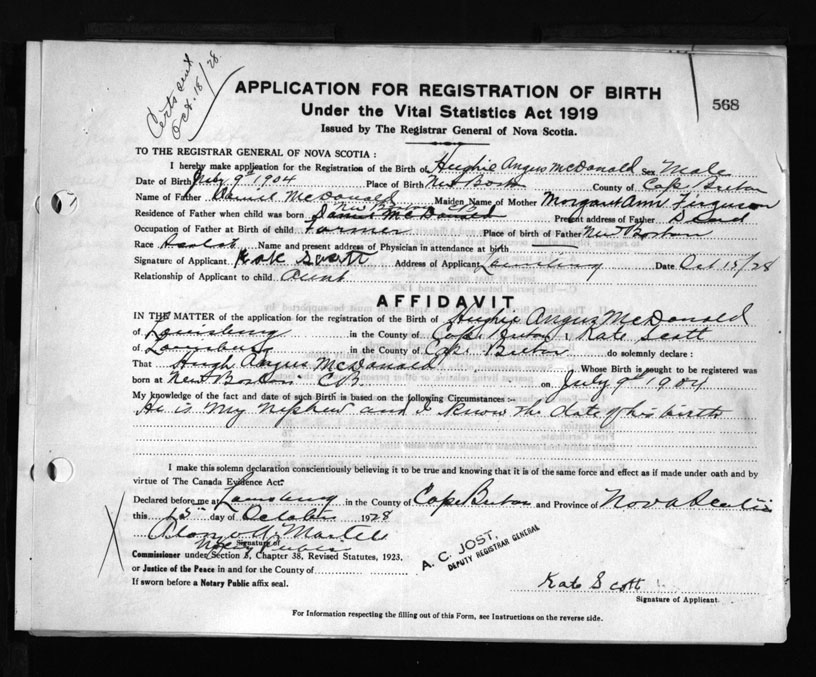 Certs sent
Oct. 18/28
APPLICATION FOR REGISTRATION OF BIRTH
568
Under the Vital Statistics Act 1919
Issued by The Registrar General of Nova Scotia.
TO THE REGISTRAR GENERAL OF NOVA SCOTIA :
I hereby make application for the Registration of the Birth of Hughie Angus McDonald Sex Male
Date of Birth July 9th 1904 Place of Birth New Boston County of Cape Breton
Name of Father Daniel McDonald Maiden Name of Mother Margaret Ann Ferguson
New Boston CB
Residence of Father when child was born Daniel McDonald Present address of Father Dead
Occupation of Father at Birth of child Farmer Place of birth of Father New Boston
Race Scotch Name and present address of Physician in attendance at birth
Signature of Applicant Kate Scott Address of Applicant Louisburg Date Oct 15/28
Relationship of Applicant to child Aunt
AFFIDAVIT
IN THE MATTER of the application for the registration of the Birth of Hughie Angus McDonald
of Louisburg in the County of Cape Breton, Kate Scott
of Louisburg in the County of Cape Breton do solemnly declare :
That Hugh Angus McDonald Whose Birth is sought to be registered was
born at New Boston CB on July 9th 1904
My knowledge of the fact and date of such Birth is based on the following Circumstances :-
He is my nephew and I know the date of his birth
I make this solemn declaration conscientiously believing it to be true and knowing that it is of the same force and effect as if made under oath and by
virtue of The Canada Evidence Act.
Declared before me at Louisburg in the County of Cape Breton and Province of Nova Scotia
this 15th day of October 1928
Martell
Signature of
Notary Public
Commissioner under Section 5, Chapter 38, Revised Statutes, 1923,
or Justice of the Peace in and for the County of
If sworn before a Notary Public affix seal.
A. C. JOST,
DEPUTY REGISTRAR GENERAL
Kate Scott
Signature of Applicant.
For Information respecting the filling out of this Form, see Instructions on the reverse side.